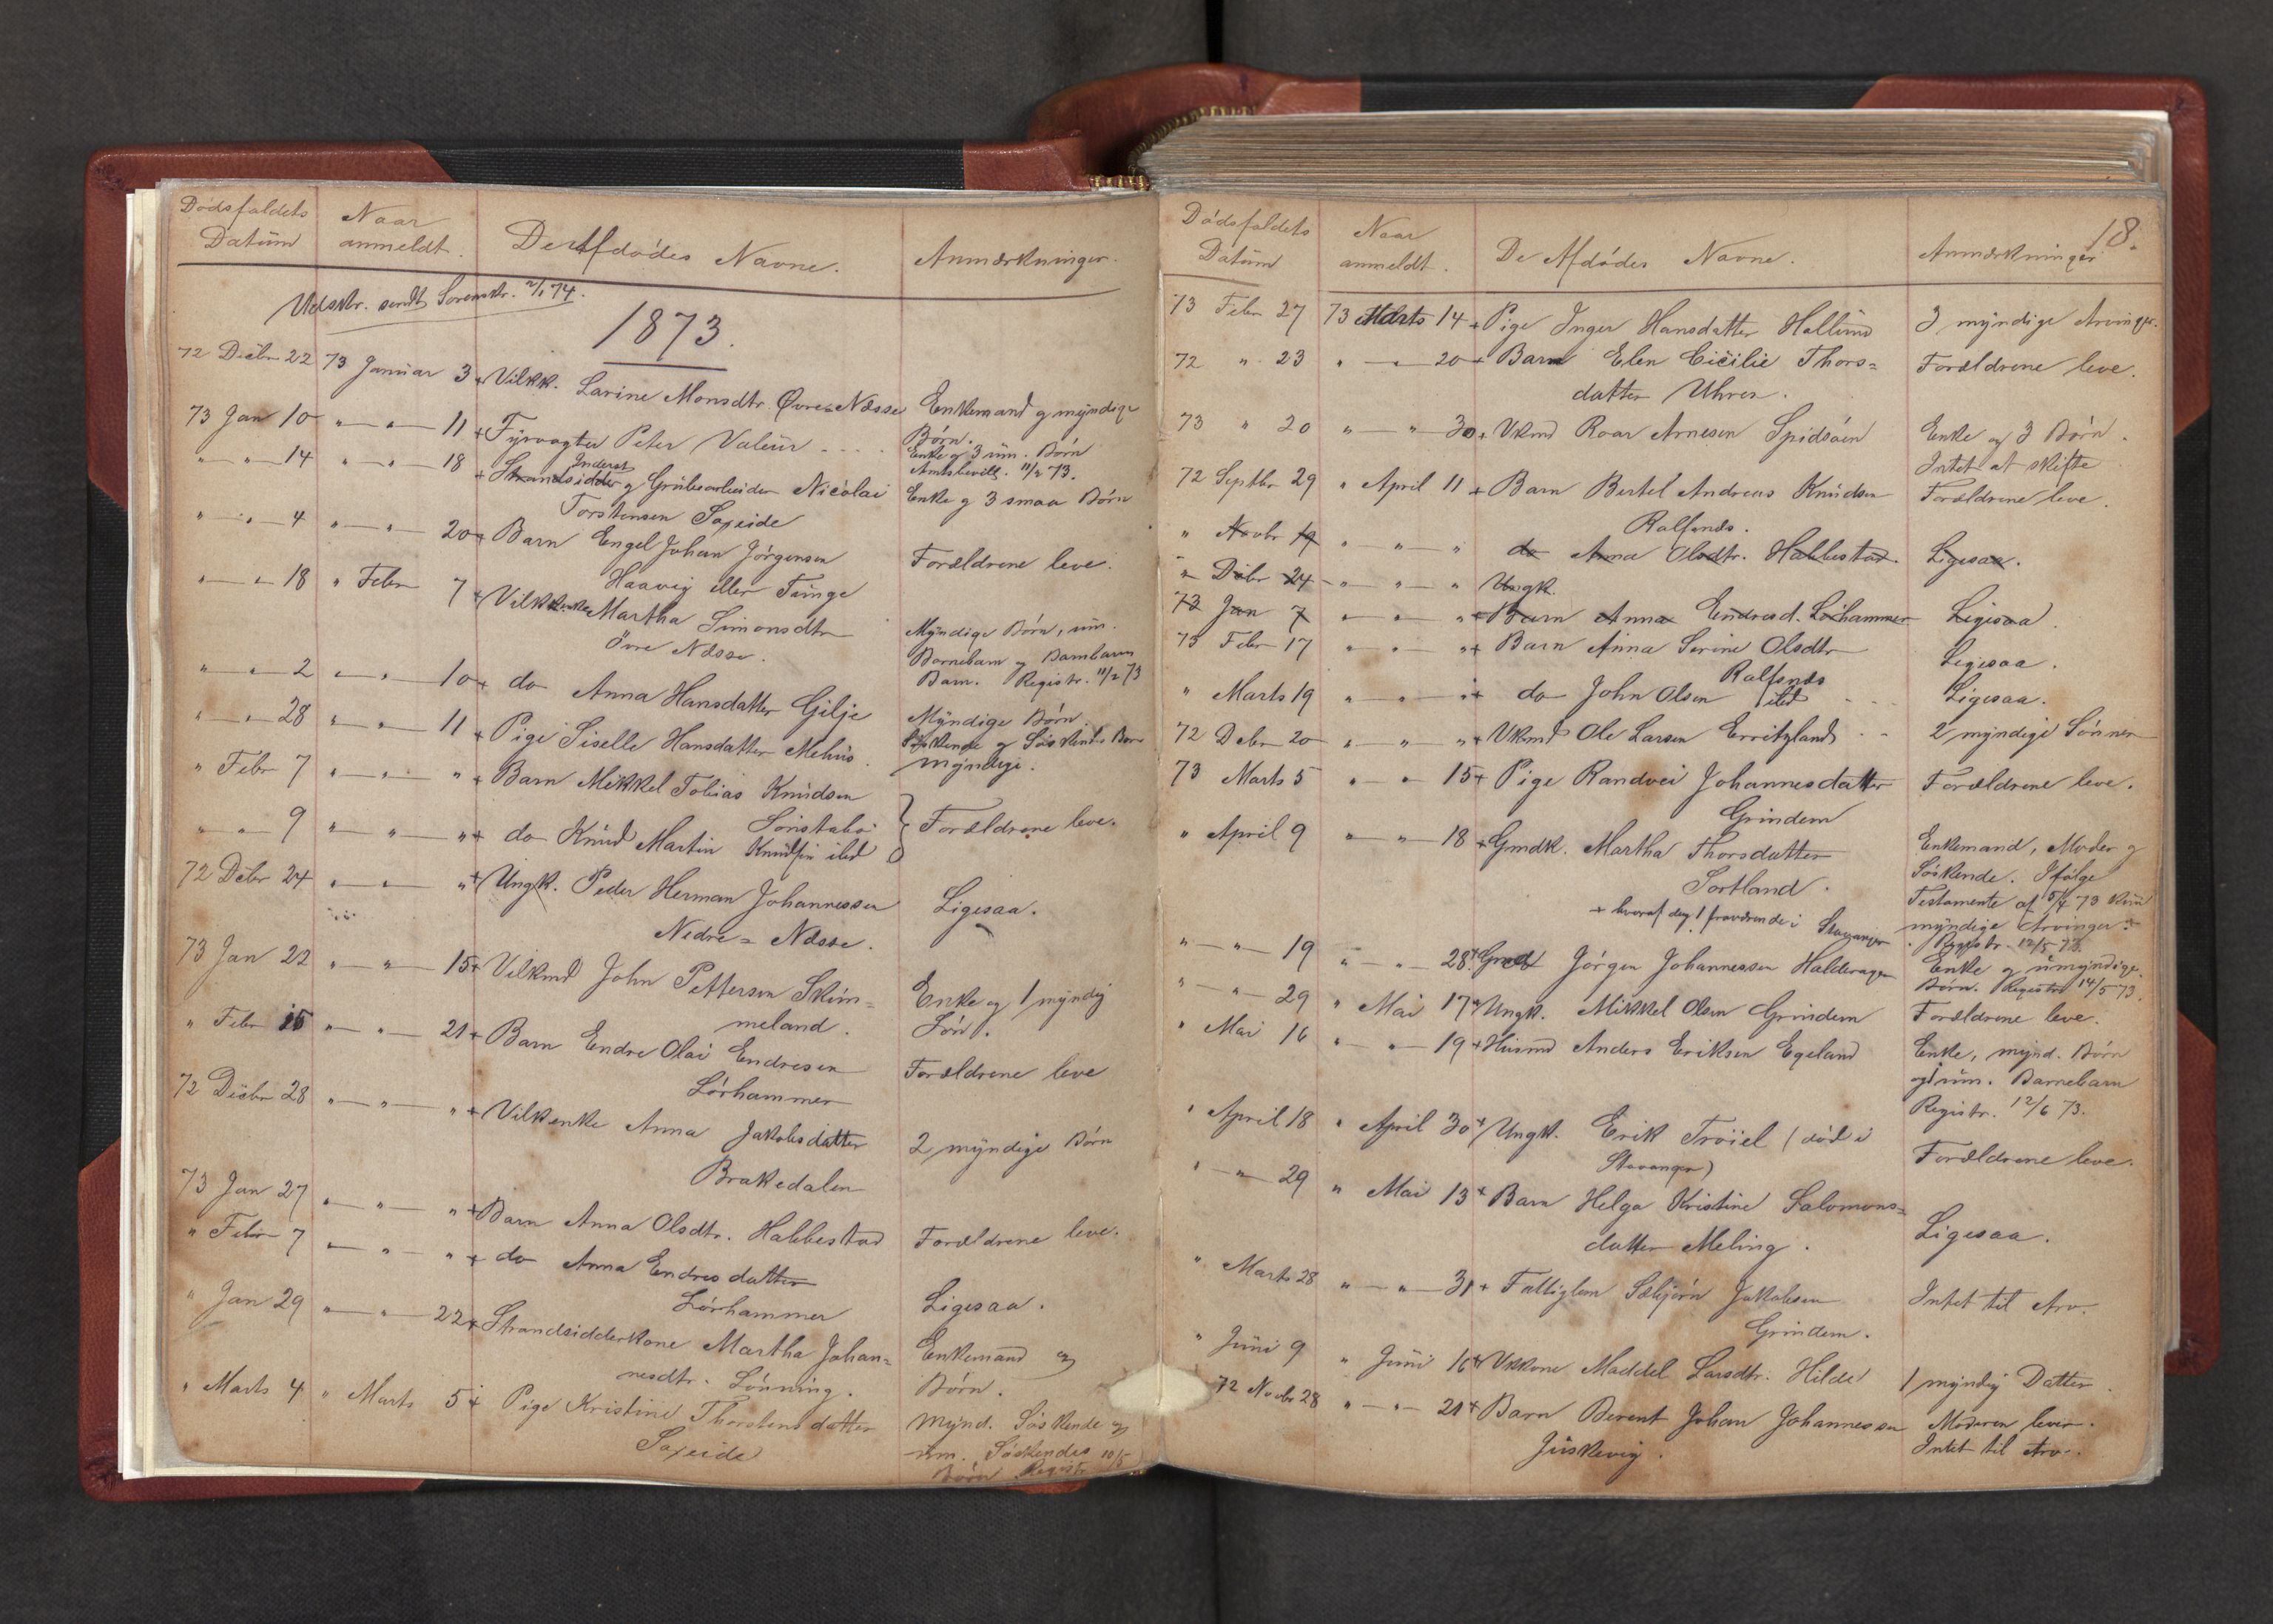 Dødsfaldets Datum | Naar anmeldt. | De Afdødes Navne. | Anmærkninger.
Udskr. sendt Sorenskr. 2/1 74.
1873.
72 Decbr 22 | 73 Januar 3 + | Vilkk. Larine Monsdtr. Øvre=Næsse | Enkemand og myndige
Børn.
73 Jan 10 | " — " — 11 + | Fyrvogter Peter Valeur - - - . | Enke og 3 um. Børn
Amtsbevill. 11/2 73.
" — " — 14 | " — " — 18 + | Strandsidder Inderst og Grubearbeider Nicolai | Enke og 3 smaa Børn
Torstensen Saxeide
" — " — 4 | " — " — 20 + | Barn Engel Johan Jørgensen | Forældrene leve.
Haavig eller Tunge
" — " — 18 | " Febr 7 + | Vilkkenke Martha Simonsdtr | Myndige Børn, um.
Øvre Næsse. | Barnebarn og Barnbarns
Barn. Registr. 11/2 73
" — " — 2 | " — " — 10 + | do Anna Hansdatter Gilje | Myndige Børn
" — " — 28 | " — " — 11 + | Pige Siselle Hansdatter Mehus. | Søskende og Søskends Børn
myndige.
" Febr 7 | " — " — " + | Barn Mikkel Tobias Knudsen
Sønstabø | Forældrene leve.
" — " — 9 | " — " — " + | do Knud Martin Knudsen ibid
72 Decbr 24 | " — " — " + | Ungk. Peder Herman Johannessen | Ligesaa.
Nedre = Næsse.
73 Jan 22 | " — " — 15 + | Vilkmd John Pettersen Skim= | Enke og 1 myndig
meland. | Søn.
" Febr 15 | " — " — 21 + | Barn Endre Olai Endresen | Forældrene leve
Lørhammer
72 Decbr 28 | " — " — " + | Vilkenke Anna Jakobsdatter | 2 myndige Børn
Brakedalen
73 Jan 27 | " — " — " + | Barn Anna Olsdtr. Habbestad | Forældrene leve.
" Febr 7 | " — " — " + | do Anna Endresdatter | Ligesaa.
Lørhammer
" Jan 29 | " — " — 22 + | Strandsidderkone Martha Johan= | Enkemand og
nesdtr. Lønning. | Børn.
" Marts 4 | " Marts 5 + | Pige Kristine Thorstensdatter | Mynd. Søskende og
Saxeide | um. Søskendes
Børn Registr 10/5
18.
Dødsfaldets Datum | Naar anmeldt. | De Afdødes Navne. | Anmærkninger
73 Febr 27 | 73 Marts 14 + | Pige Inger Hansdatter Hellund | 3 myndige Arvinger.
72 " 23 | " — " — 20 + | Barn Elen Cicilie Thors= | Forældrene leve.
datter Uhren.
73 " 20 | " — " — 30 + | Vkmd Roar Arnesen Spidsøen | Enke og 3 Børn.
Intet at skifte
72 Septbr 29 | " April 11 + | Barn Bertel Andreas Knudsen | Forældrene leve.
Ralfsnes.
" Novbr 19 | " — " — " | do Anna Olsdtr. Habbestad | Ligesaa.
" Dcbr 24 | " — " — " | Ungk.
73 Jan 7 | " — " — " + | Barn Anna Endresd. Lørhammer | Ligesaa.
73 Febr 17 | " — " — " + | Barn Anna Serine Olsdtr | Ligesaa.
Ralfsnes
" Marts 19 | " — " — " + | do John Olsen ibid | Ligesaa.
72 Decbr 20 | " — " — " + | Vkmd Ole Larsen Erritzland | 2 myndige Sønner
73 Marts 5 | " — " — 15 + | Pige Randvei Johannesdatter | Forældrene leve.
Grindem
" April 9 | " — " — 18 + | Gmdk. Martha Thorsdatter | Enkemand, Moder og
Sortland. | Søskende. Ifølge
Testamente af 5/4 73 kun
+ hvoraf dog 1 fraværende i Stavanger | myndige Arvinger +
Registr. 12/5 73.
" — " — 19 | " — " — 28 + | Gmd Jørgen Johannessen Halderager | Enke og umyndige
Børn. Registr 14/5 73.
" — " — 29 | " Mai 17 + | Ungk. Mikkel Olsen Grindem | Forældrene leve.
" Mai 16 | " — " — 19 + | Husmd Anders Eriksen Egeland | Enke, mynd. Børn
og 1 um. Barnebarn
Registr. 12/6 73.
" April 18 | " April 30 + | Ungk. Erik Troiel (død i | Forældrene leve.
Stavanger)
" — " — 29 | " Mai 13 + | Barn Helga Kristine Salomons= | Ligesaa.
datter Meling.
" Marts 28 | " — " — 31 + | Fattiglem Sæbjørn Jakobsen | Intet til Arv.
Grindem.
" Juni 9 | " Juni 16 + | Vkkone Maddel Larsdtr. Hilde | 1 myndig Datter.
72 Novbr 28 | " — " — 21 + | Barn Berent Johan Johannessen | Moderen lever.
Juskevig. | Intet til Arv.